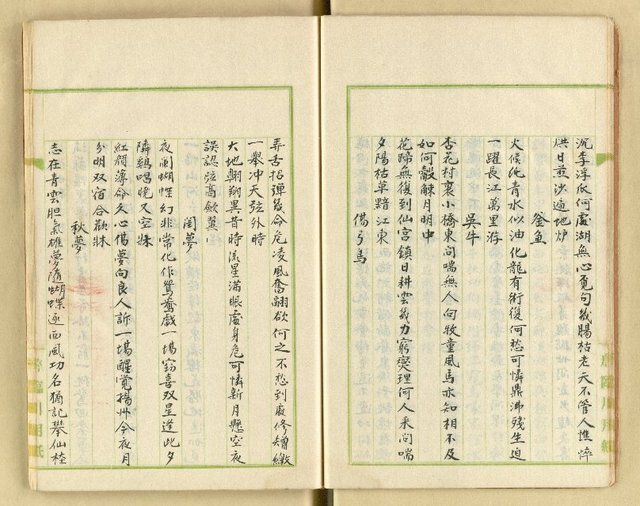 沉李浮瓜何處湖無心覓句幾腸枯老天不管人憔悴
烘日煎沙遍地炉
釜魚
火候純青水似油化龍有術復何愁可憐鼎沸殘生迫
一躍長江萬里游
吳牛
杏花村裏小橋東問喘無人向牧童風馬亦知相不及
如何觳觫月明中
花蹄無復到仙宮鎮日耕雲幾力窮燮理何人来问喘
夕陽枯草路江東
傷弓鳥
弄舌招彈幾命危凌風奮翮欲何之不愁到處修矰繳
一舉冲天弦外時
大地翱翔異昔時流星满眼處身危可憐新月懸空夜
誤認弦高斂翼
閨夢
夜闌蝴蝶幻非常化作鴛鴦戲一場窃喜双星逢此夕
隣鷄唱晚又空牀
红顏薄命久心傷夢向良人訴一場醒覚揚州今夜月
分明双宿合歡牀
秋夢
志在青雲胆氣雄夢隨蝴蝶逐西風功名猶記攀仙桂